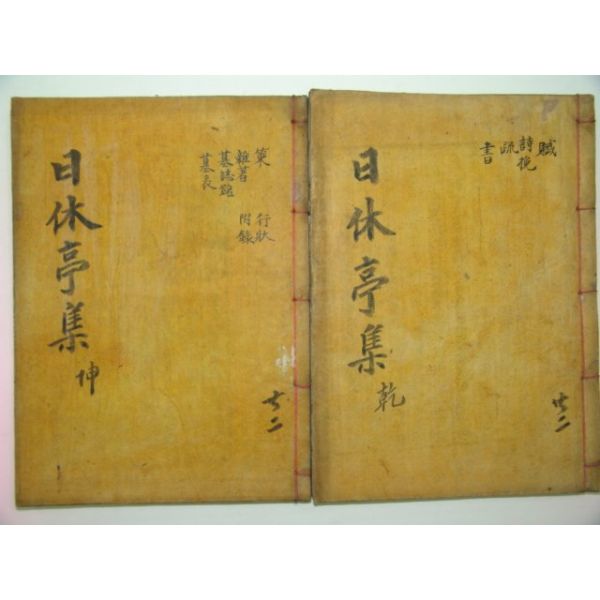 賦
詩挽
疏
書
日休亭集 乾
共二
策 行狀
雜著 附錄
墓誌銘
墓表
日休亭集 坤
共二